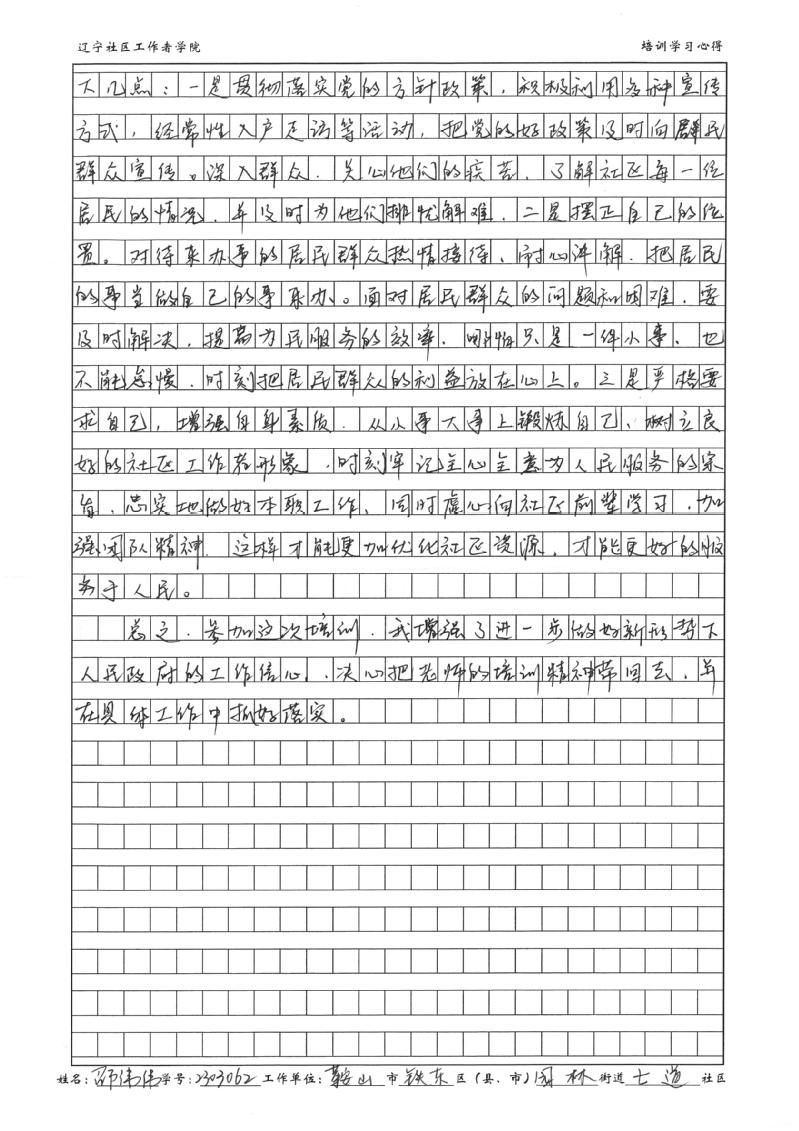 辽宁社区工作者学院 培训学习心得
下几点：一是贯彻落实党的方针政策，积极利用各种宣传
方式，经常性入户走访等活动，把党的好政策及时向群民
群众宣传。深入群众，关心他们的疾苦，了解社区每一位
居民的情况，并及时为他们排忧解难，二是摆正自己的位
置。对待来办事的居民群众热情接待、耐心讲解，把居民
的事当做自己的事来办。面对居民群众的问题和困难，要
及时解决，提高为民服务的效率，哪怕只是一件小事，也
不能怠慢，时刻把居民群众的利益放在心上。三是严格要
求自己，增强自身素质，从小事大事上锻炼自己，树立良
好的社区工作者形象，时刻牢记全心全意为人民服务的宗
旨，忠实地做好本职工作，同时虚心向社区前辈学习，加
强团队精神，这样才能更加优化社区资源，才能更好的服
务于人民。
总之，参加这次培训，我增强了进一步做好新形势下
人民政府的工作信心，决心把老师的培训精神带回去，并
在具体工作中抓好落实。
姓名：邵伟伟 学号：2303062 工作单位：鞍山 市 铁东 区（县、市）园林 街道 七道 社区